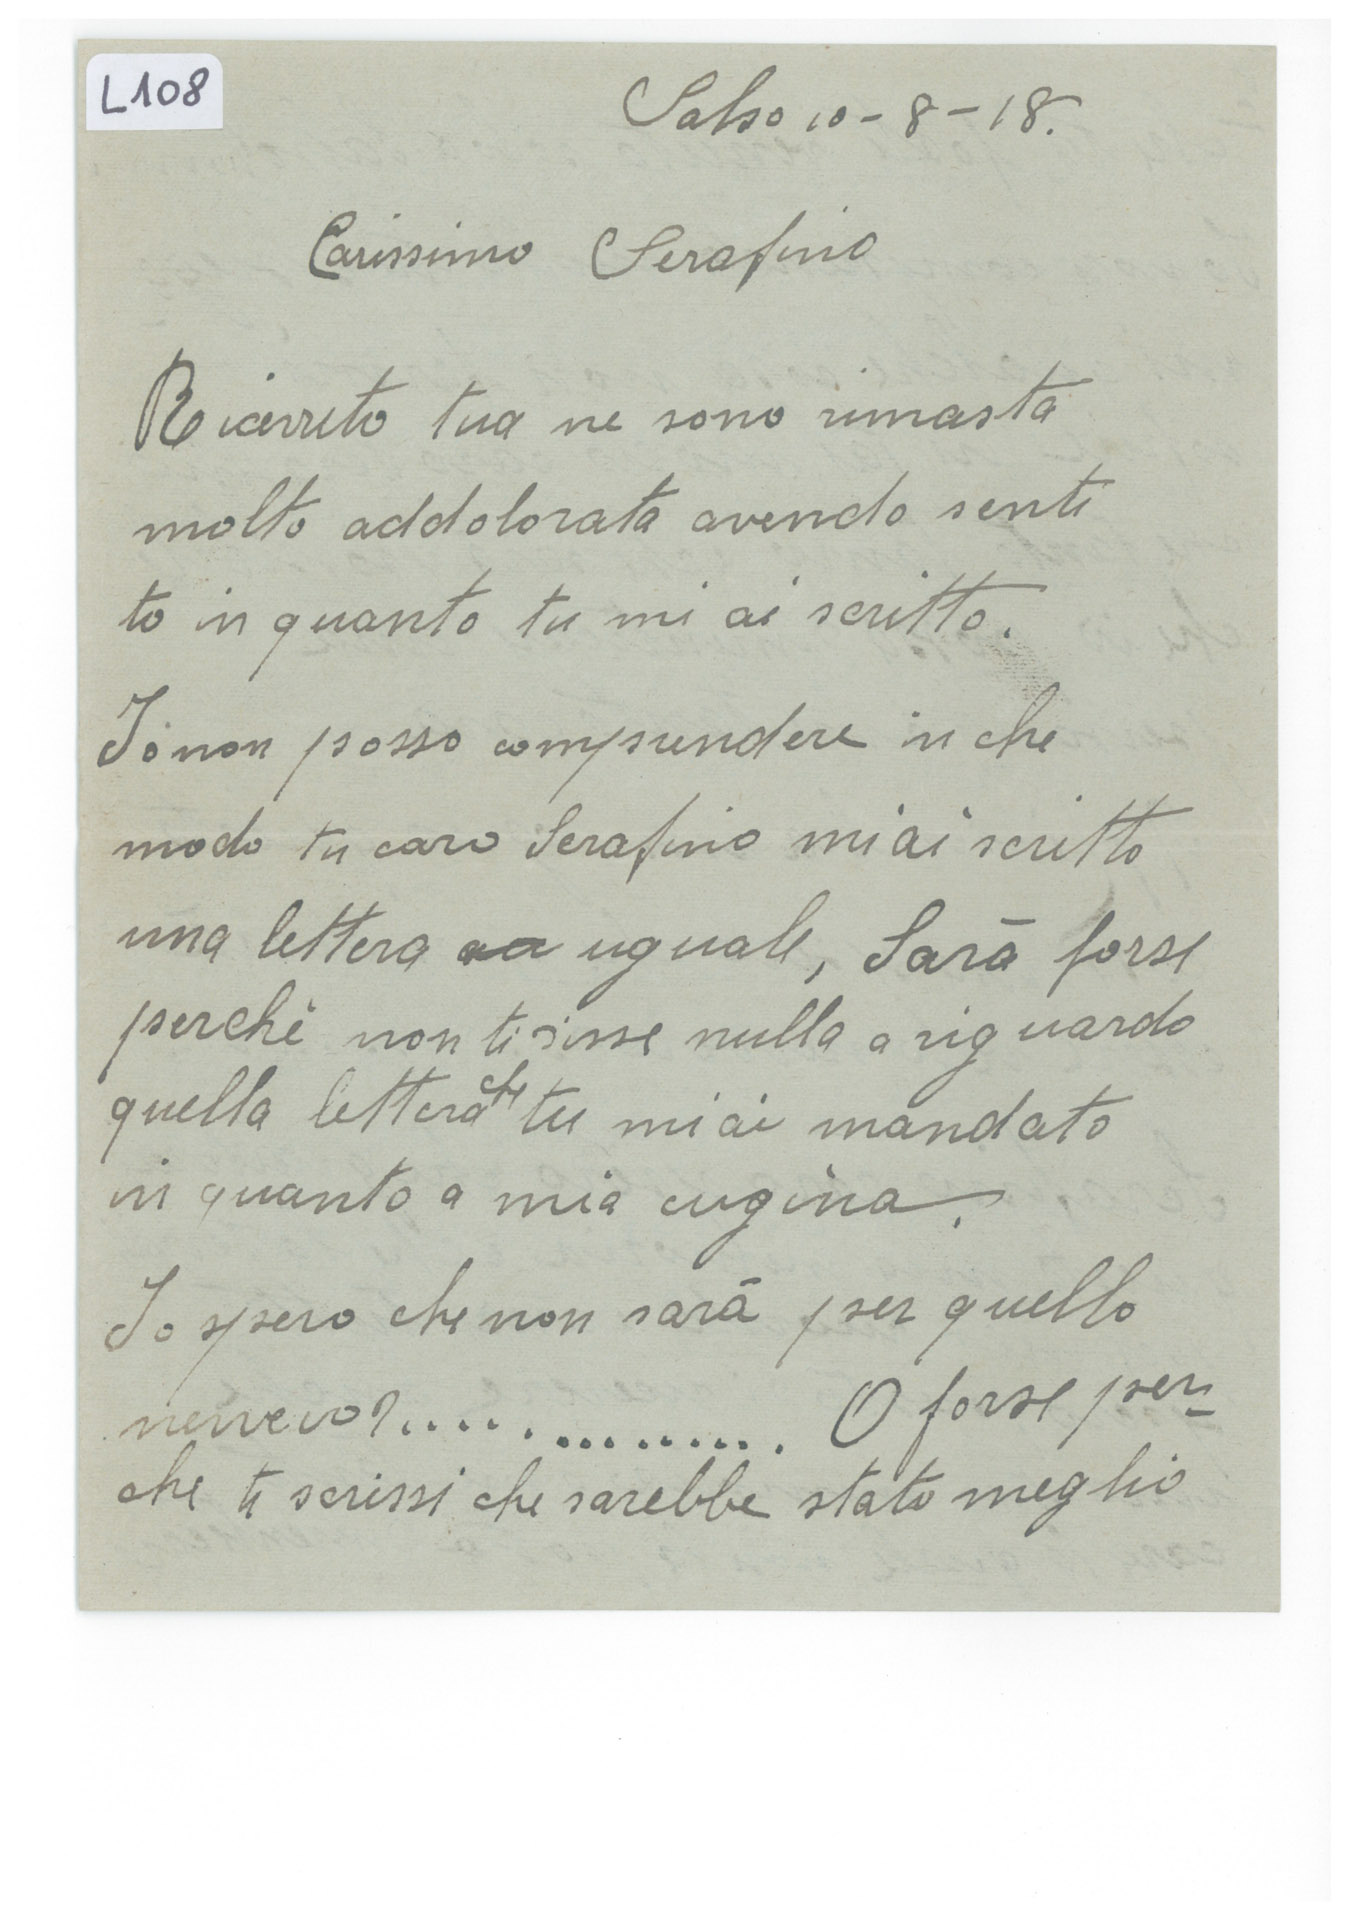 L108
Salso 10-8-18.
Carissimo Serafino
Ricevuto tua ne sono rimasta
molto addolorata avendo senti
to in quanto tu mi ai scritto.
Io non posso comprendere in che
modo tu caro Serafino mi ai scritto
una lettera uguale, Sarà forse
perchè non ti disse nulla a riguardo
quella lettera che tu mi ai mandato
in quanto a mia cugina.
Io spero che non sarà per quello
nevvero?.............. O forse per-
che ti scrissi che sarebbe stato meglio